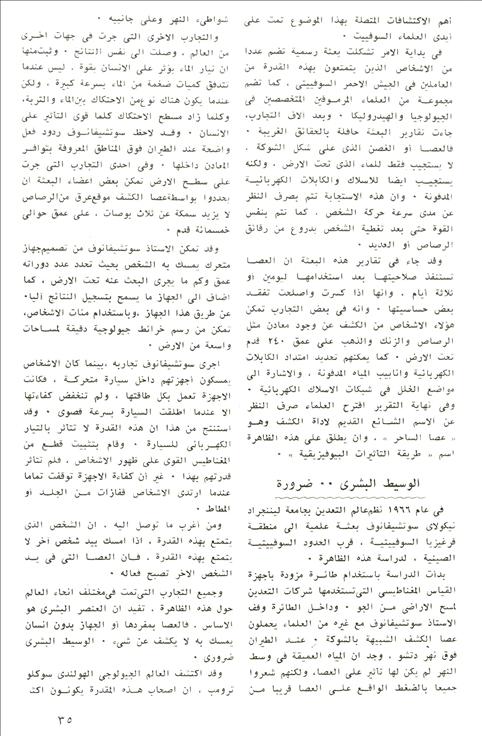 أهم الاكتشافات المتصلة بهذا الموضوع تمت على
أيدى العلماء السوفييت ٠
في بداية الامر تشكلت بعثة رسمية تضم عددا
من الاشخاص الذين يتمتعون بهذه القدرة من
العاملين في الجيش الاحمر السوفييتى ، كما تضم
مجموعة من العلماء المرموقين المتخصصين في
الجيولوجيا والهيدروليكا ٠ وبعد الاف التجارب،
جاءت تقارير البعثة حافلة بالحقائق الغريبة ٠
فالعصا أو الغصن الذى على شكل الشوكة ،
لا يستجيب فقط للماء الذى تحت الارض ، ولكنه
يستجيب ايضا للاسلاك والكابلات الكهربائية
المدفونة ٠ وان هذه الاستجابة تتم بصرف النظر
عن مدى سرعة حركة الشخص ، كما تتم بنفس
القوة حتى بعد تغطية الشخص بدروع من رقائق
الرصاص أو الحديد ٠
وقد جاء في تقارير هذه البعثة ان العصا
تستنفذ صلاحيتها بعد استخدامها ليومين أو
ثلاثة أيام ، وانها اذا كسرت واصلحت تفقد
بعض حساسيتها ٠ وانه في بعض التجارب تمكن
هؤلاء الاشخاص من الكشف عن وجود معادن مثل
الرصاص والزنك والذهب على عمق ٢٤٠ قدم
تحت الارض ٠ كما يمكنهم تحديد امتداد الكابلات
الكهربائية وانابيب المياه المدفونة ، والاشارة الى
مواضع الخلل في شبكات الاسلاك الكهربائية ٠
وفي نهاية التقرير اقترح العلماء صرف النظر
عن الاسم الشائع القديم لاداة الكشف وهو
« عصا الساحر » ، وان يطلق على هذه الظاهرة
اسم « طريقة التأثيرات البيوفيزيقية » ٠
الوسيط البشرى ٠٠ ضرورة
في عام ١٩٦٦ نظم عالم التعدين بجامعة ليننجراد
نيكولاى سوتشيفانوف بعثة علمية الى منطقة
فرغيزيا السوفييتية ، قرب الحدود السوفييتية
الصينية ، لدراسة هذه الظاهرة ٠
بدأت الدراسة باستخدام طائرة مزودة بأجهزة
القياس المغناطيسى التى تستخدمها شركات التعدين
لمسح الاراضى من الجو ٠ وداخل الطائرة وقف
الاستاذ سوتشيفانوف مع غيره من العلماء يحملون
عصا الكشف الشبيهة بالشوكة ٠ عند الطيران
فوق نهر دتشو ، وجد ان المياه العميقة في وسط
النهر لم يكن لها تأثير على العصا، ولكنهم شعروا
جميعا بالضغط الواقع على العصا قريبا من
شواطىء النهر وعلى جانبيه ٠
والتجارب الاخرى التى جرت في جهات اخرى
من العالم ، وصلت الى نفس النتائج ٠ وثبت منها
ان تيار الماء يؤثر على الانسان بقوة ، ليس عندما
تتدفق كميات ضخمة من الماء بسرعة كبيرة ، ولكن
عندما يكون هناك نوع من الاحتكاك بين الماء والتربة،
وكلما زاد مسطح الاحتكاك كلما قوى التأثير على
الانسان ٠ وقد لاحظ سوتشيفانوف ردود فعل
واضحة عند الطيران فوق المناطق المعروفة بتوافر
المعادن داخلها ٠ وفي احدى التجارب التى جرت
على سطح الارض تمكن بعض اعضاء البعثة ان
يحددوا بواسطة عصا الكشف موقع عرق من الرصاص
لا يزيد سمكه عن ثلاث بوصات ، على عمق حوالى
خمسمائة قدم ٠
وقد تمكن الاستاذ سوتشيفانوف من تصميم جهاز
متحرك يمسك به الشخص بحيث تحدد عدد دوراته
عمق وكم ما يجرى البحث عنه تحت الارض ، كما
اضاف الى الجهاز ما يسمح بتسجيل النتائج آليا٠
عن طريق هذا الجهاز ،وباستخدام مئات الاشخاص،
تمكن من رسم خرائط جيولوجية دقيقة لمساحات
واسعة من الارض ٠
اجرى سوتشيفانوف تجاربه ،بينما كان الاشخاص
يمسكون اجهزتهم داخل سيارة متحركة ، فكانت
الاجهزة تعمل بكل طاقتها ، ولم تنخفض كفاءتها
الا عندما اطلقت السيارة بسرعة قصوى ٠ وقد
استنتج من هذا ان هذه القدرة لا تتأثر بالتيار
الكهربائى للسيارة ٠ وقام بتثبيت قطع من
المغناطيس القوى على ظهور الاشخاص ، فلم تتأثر
قدرتهم بهذا ٠ غير أن كفاءة الاجهزة توقفت تماما
عندما ارتدى الاشخاص قفازات من الجلد أو
المطاط ٠
ومن أغرب ما توصل اليه ، ان الشخص الذى
يتمتع بهذه القدرة ، اذا امسك بيد شخص آخر لا
يتمتع بهذه القدرة ، فان العصا التى في يد
الشخص الآخر تصبح فعاله ٠
وجميع التجارب التى تمت في مختلف انحاء العالم
حول هذه الظاهرة ، تفيد ان العنصر البشرى هو
الاساس ، فالعصا بمفردها أو الجهاز بدون انسان
يمسك به لا يكشف عن شىء ٠ الوسيط البشرى
ضرورى ٠
وقد اكتشف العالم الجيولوجى الهولندى سوكلو
ترومب ، ان اصحاب هذه المقدرة يكونون اكثر
٣٥